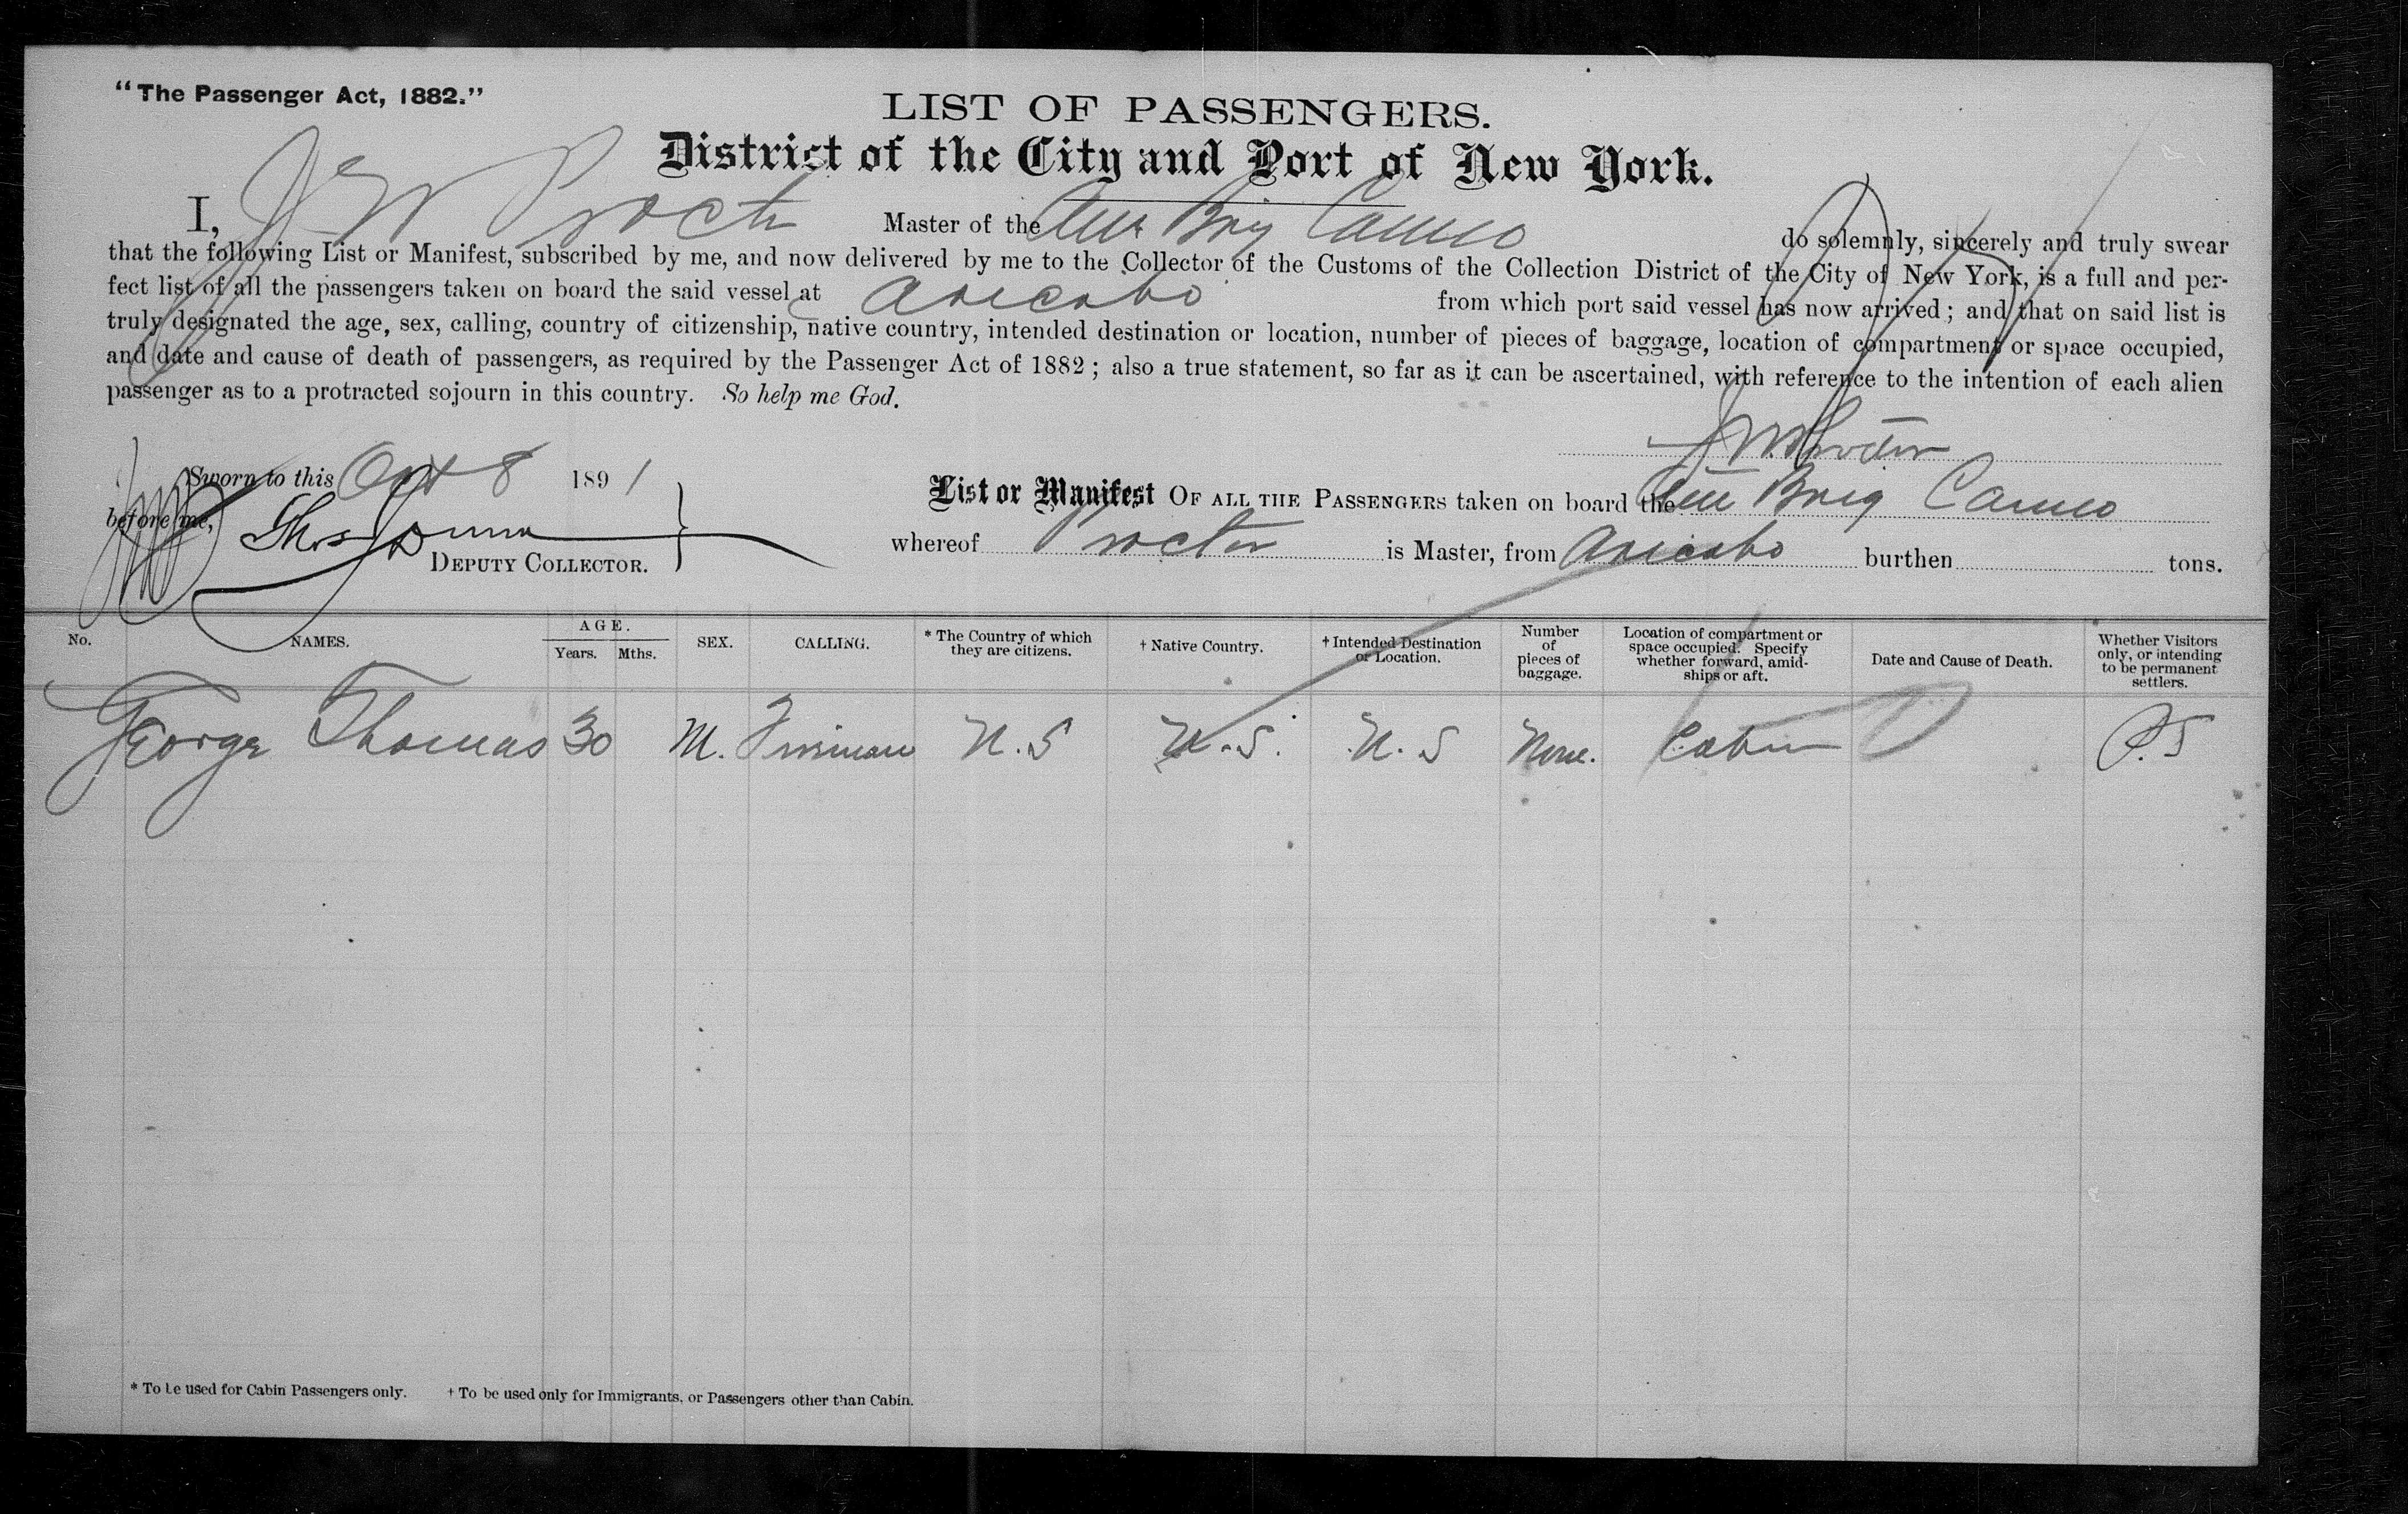 "The Passenger Act, 1882."
LIST OF PASSENGERS.
District of the City and Port of New York.
I, J W Procter Master of the Am Brig Cameo do solemnly, sincerely and truly swear
that the following List or Manifest, subscribed by me, and now delivered by me to the Collector of the Customs of the Collection District of the City of New York, is a full and per-
fect list of all the passengers taken on board the said vessel at Arecabo from which port said vessel has now arrived; and that on said list is
truly designated the age, sex, calling, country of citizenship, native country, intended destination or location, number of pieces of baggage, location of compartment or space occupied,
and date and cause of death of passengers, as required by the Passenger Act of 1882; also a true statement, so far as it can be ascertained, with reference to the intention of each alien
passenger as to a protracted sojourn in this country. So help me God.
J W Procter
Sworn to this Oct 8 1891
before me, Thos
DEPUTY COLLECTOR.
List or Manifest OF ALL THE PASSENGERS taken on board the Am Brig Cameo
whereof Procter is Master, from Arecabo burthen tons.
No. NAMES. AGE. Years. Mths. SEX. CALLING. * The Country of which they are citizens. † Native Country. † Intended Destination or Location. Number of pieces of baggage. Location of compartment or space occupied. Specify whether forward, amid-ships or aft. Date and Cause of Death. Whether Visitors only, or intending to be permanent settlers.
George Thomas 30 M. U.S U.S. U.S None. Cabin P.S
* To be used for Cabin Passengers only. † To be used only for Immigrants, or Passengers other than Cabin.